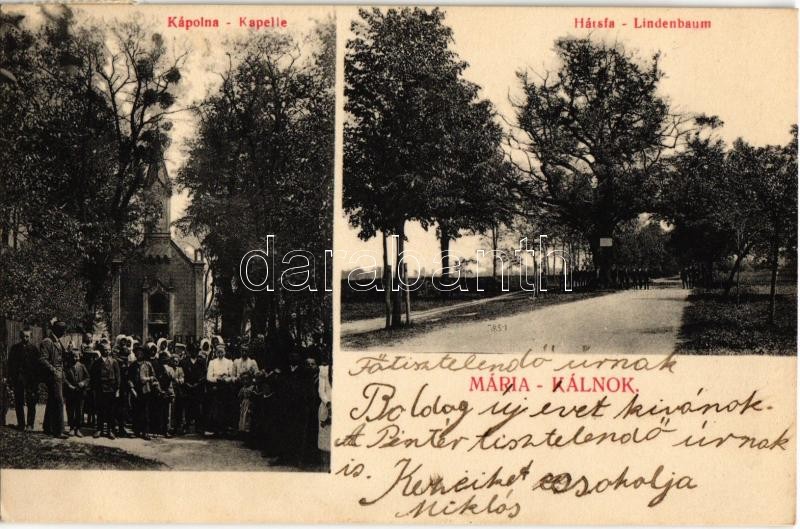 Kápolna - Kapelle
Hársfa - Lindenbaum
darabanth
MÁRIA - KÁLNOK.
Főtisztelendő úrnak
Boldog új évet kivánok.
A Péntér tisztelendő úrnak
is. Kezeiket csokolja
Miklós